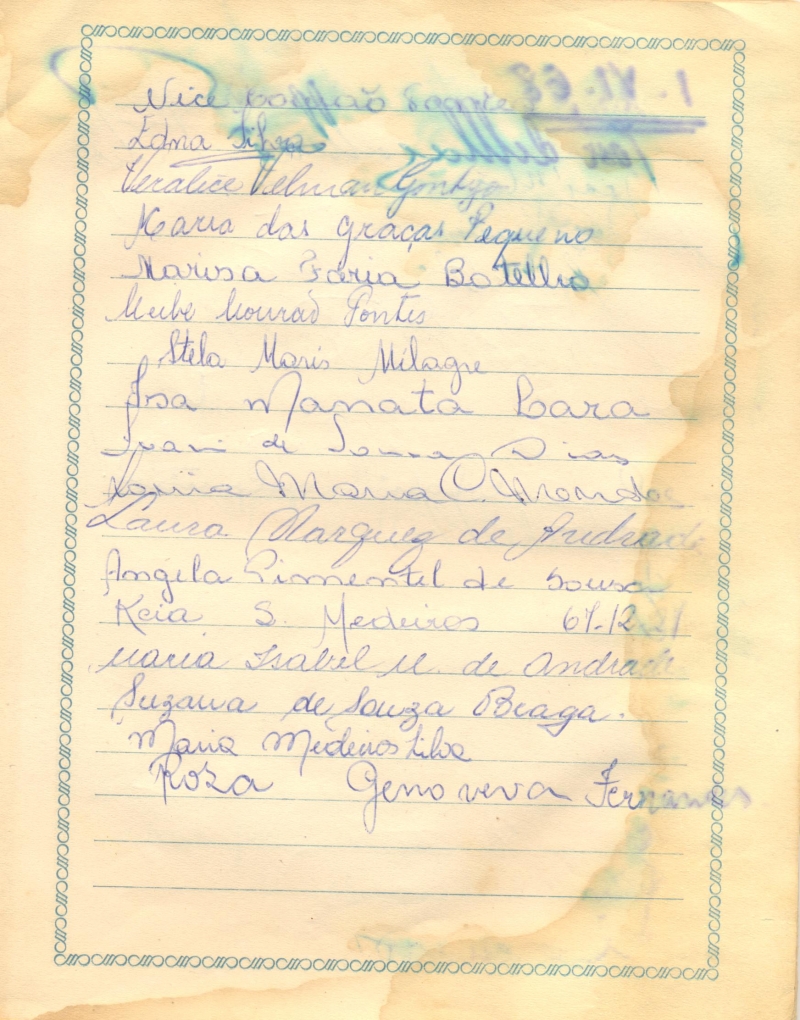 Nice
Edna Silva
Veralice Velman Gontijo
Maria das Graças Pequeno
Marisa Faria Botelho
Meibe Mourad Pontes
Stela Maris Milagre
Isa Manata Lara
Ivani de Souza Dias
Maria C.
Laura Marquez de Andrade
Angela Pimentel de Sousa
Keia S. Medeiros 67-12
Maria Isabel M. de Andrade
Suzana de Souza Braga.
Maria Medeiros Silva
Roza Genoveva Fernandes